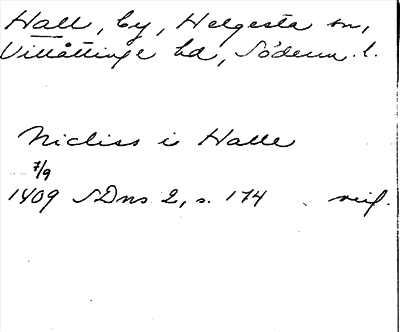 Hall, by, Helgesta sn,
Villåttinge hd, Söderm. l.
Nicliss i Halle
7/9
1409 SDns 2, s. 174